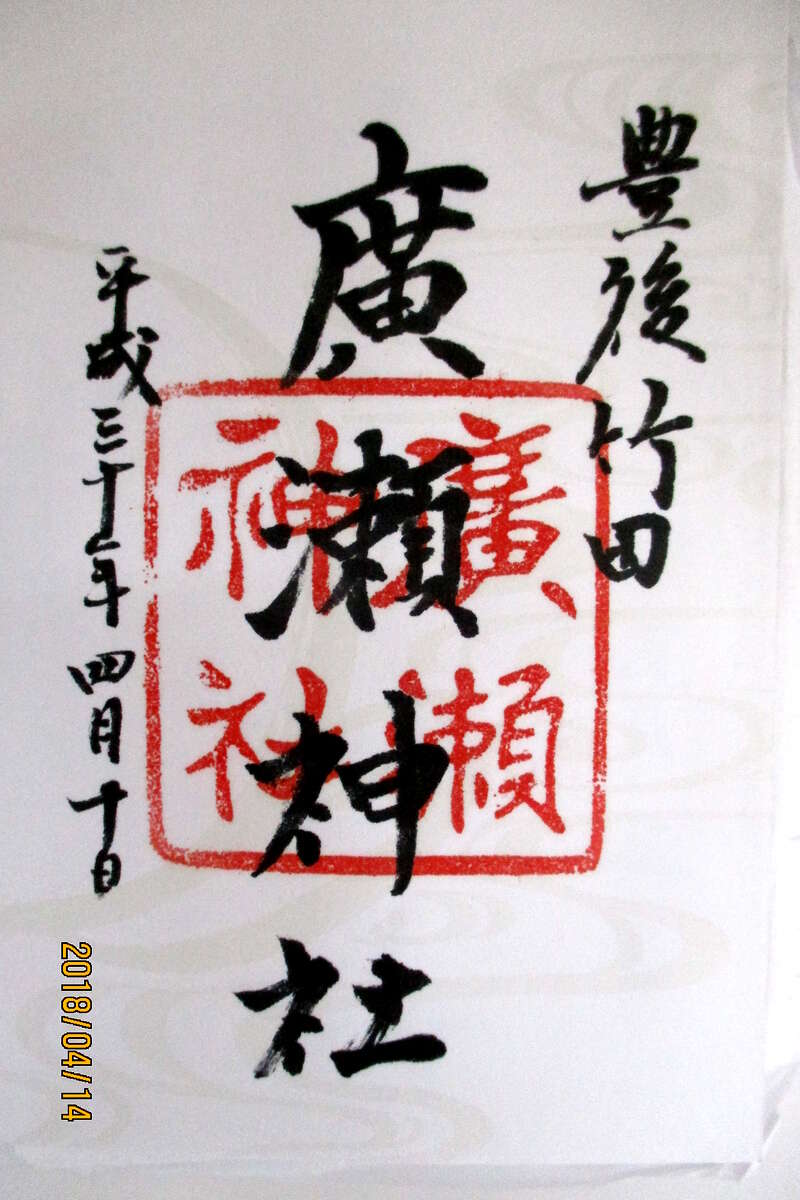 豊後竹田
廣瀬神社
廣瀬
神社
平成三十年四月十日
2018/04/14